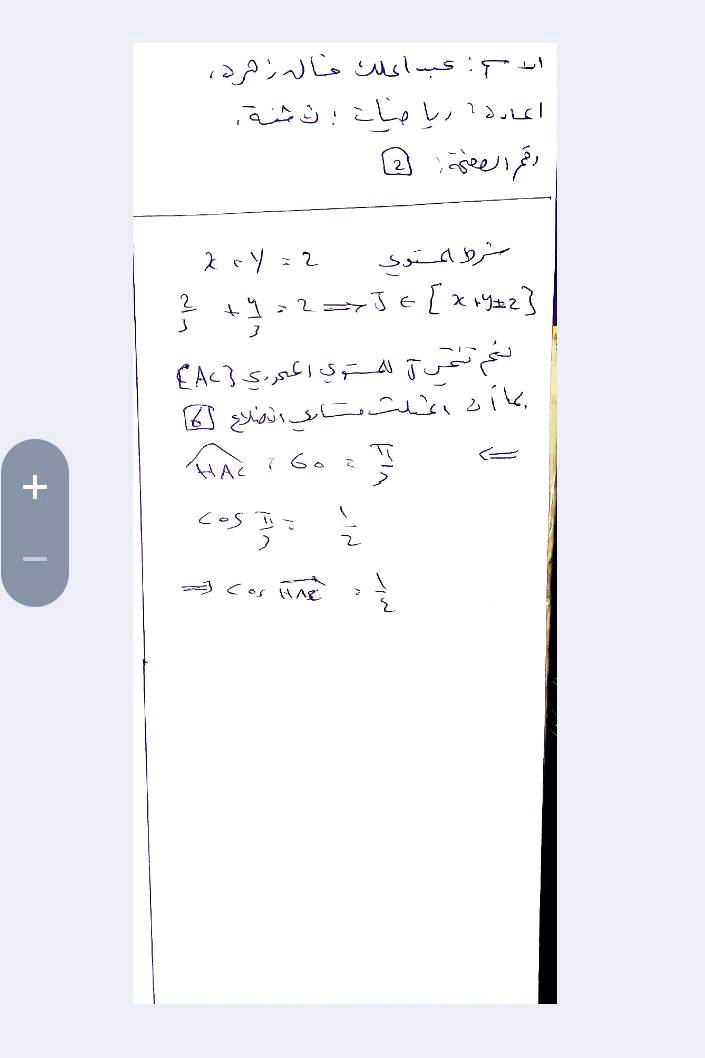 الاسم: عبد الملك خالد زهرة،
المادة: رياضيات؛ ثانية.
رقم الصفحة: 2
x + y = 2 شرط المستوي
2/3 + y/3 = 2 ⟹ J ∈ [x+y=2]
نعم تنتمي J للمستوي المحوري [AC]
بما أن المثلث متساوي الأضلاع 6
HAC = 60 = π/3 ⟸
cos π/3 = 1/2
⟹ cos HAC = 1/2
+
−